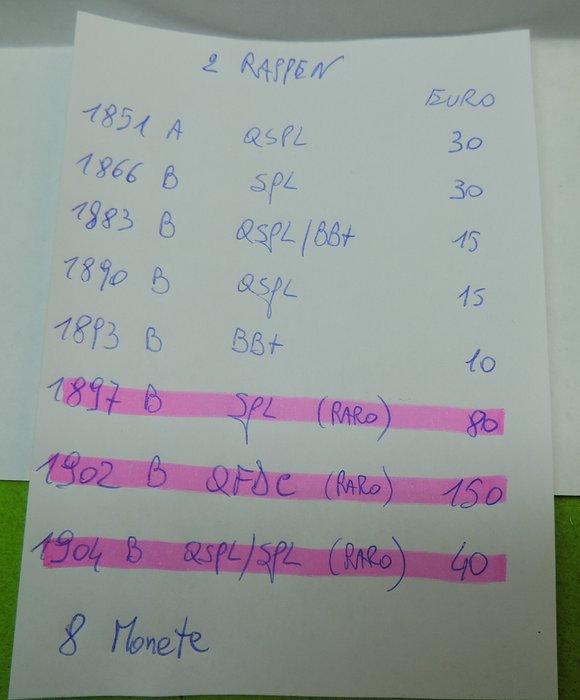 2 RAPPEN
EURO
1851 A QSPL 30
1866 B SPL 30
1883 B QSPL/BB+ 15
1890 B QSPL 15
1893 B BB+ 10
1897 B SPL (RARO) 80
1902 B QFDC (RARO) 150
1904 B QSPL/SPL (RARO) 40
8 Monete